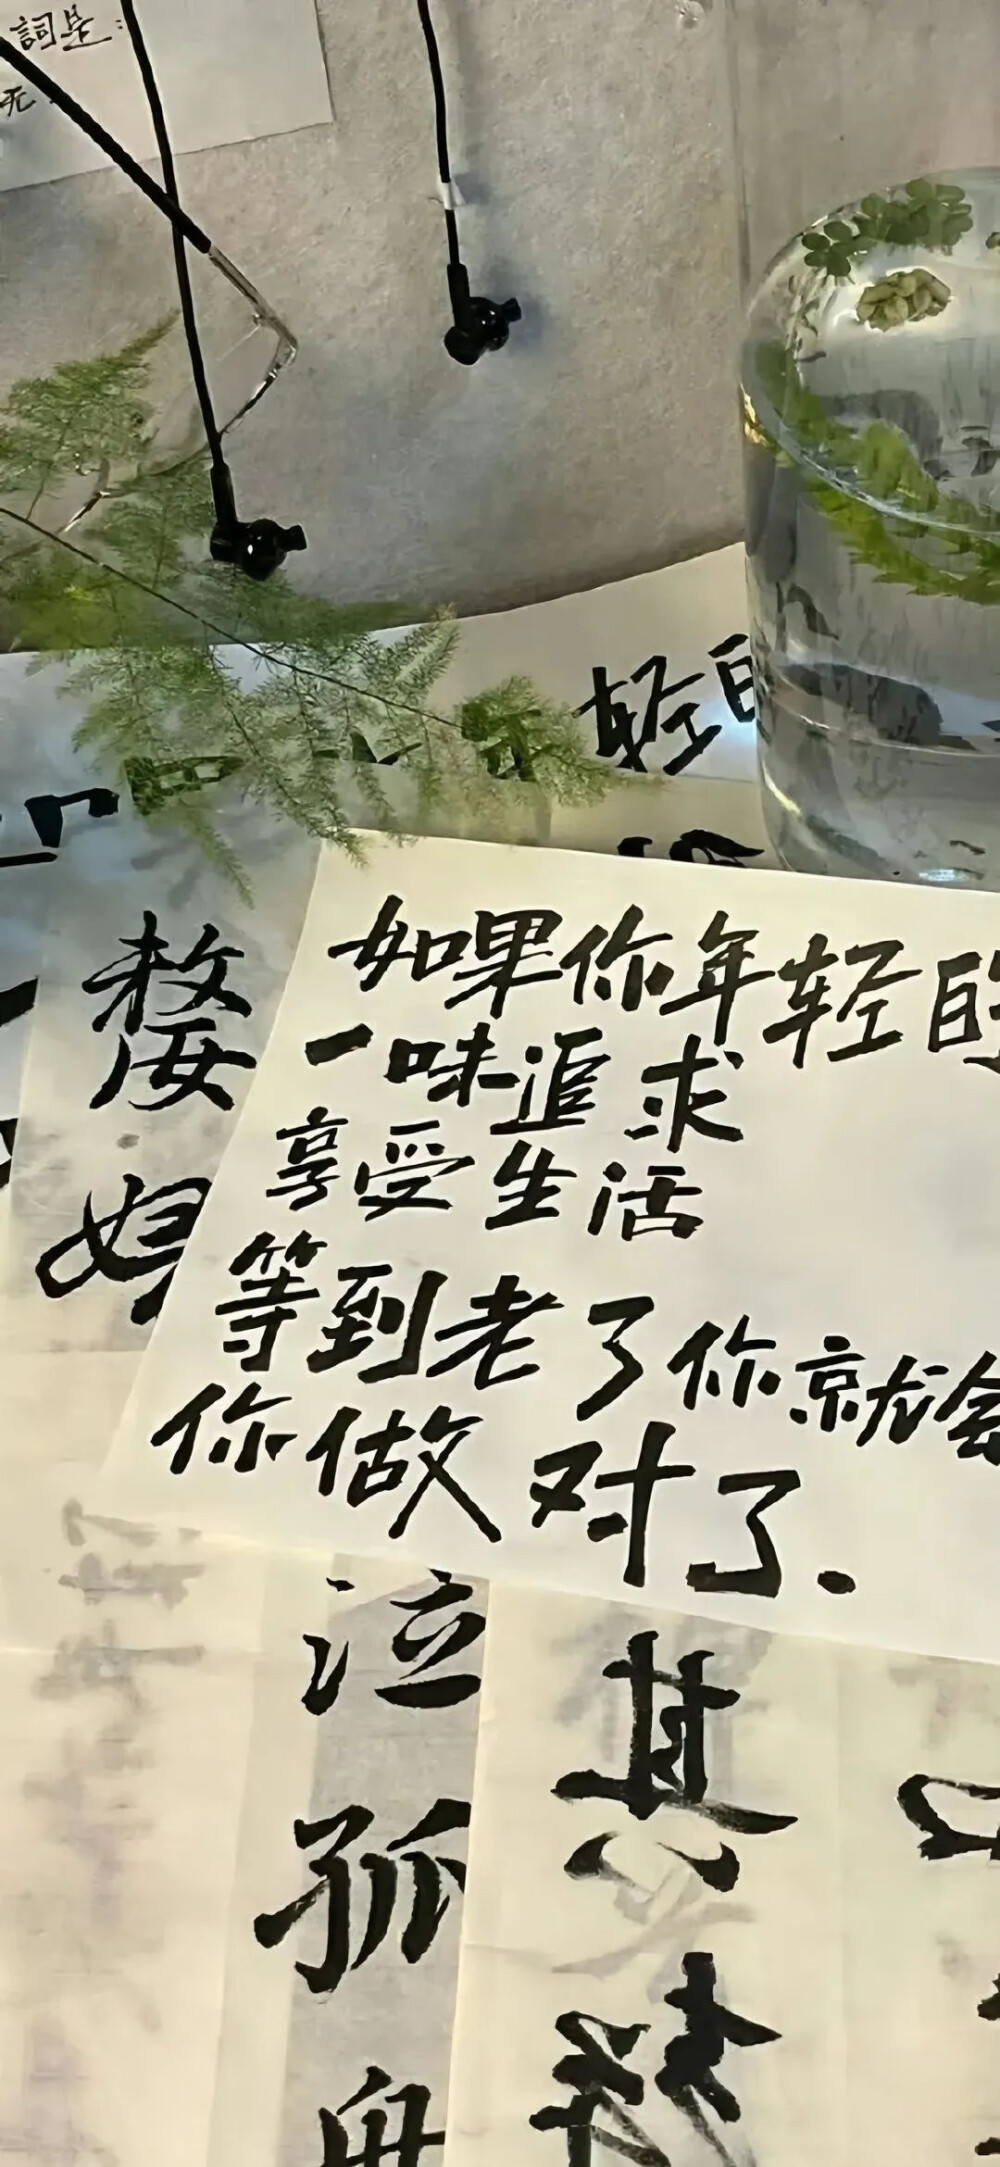 詞是:
无
轻
如果你年轻的
一味追求
享受生活
等到老了你就会
你做对了.
嫠
婦
泣
孤
舟
其